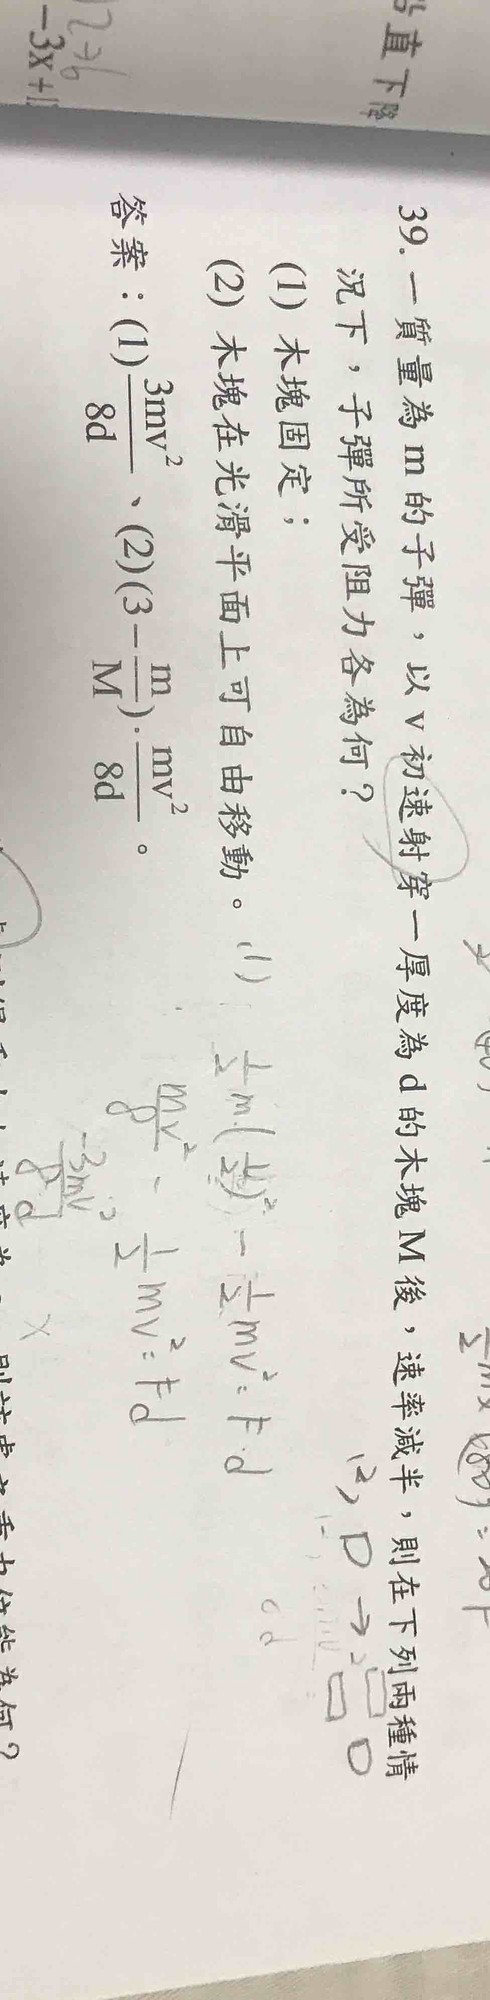 直下降
-3x+1
39. 一質量為 m 的子彈，以 v 初速射穿一厚度為 d 的木塊 M 後，速率減半，則在下列兩種情
況下，子彈所受阻力各為何？
(1) 木塊固定；
(2) 木塊在光滑平面上可自由移動。
答案：(1) 3mv²/8d 、(2)(3 - m/M)·mv²/8d 。
(1) 1/2 m (v/2)² - 1/2 mv² = F·d
mv²/8 - 1/2 mv² = Fd
-3mv²/8d
(2)
重力位能為何？